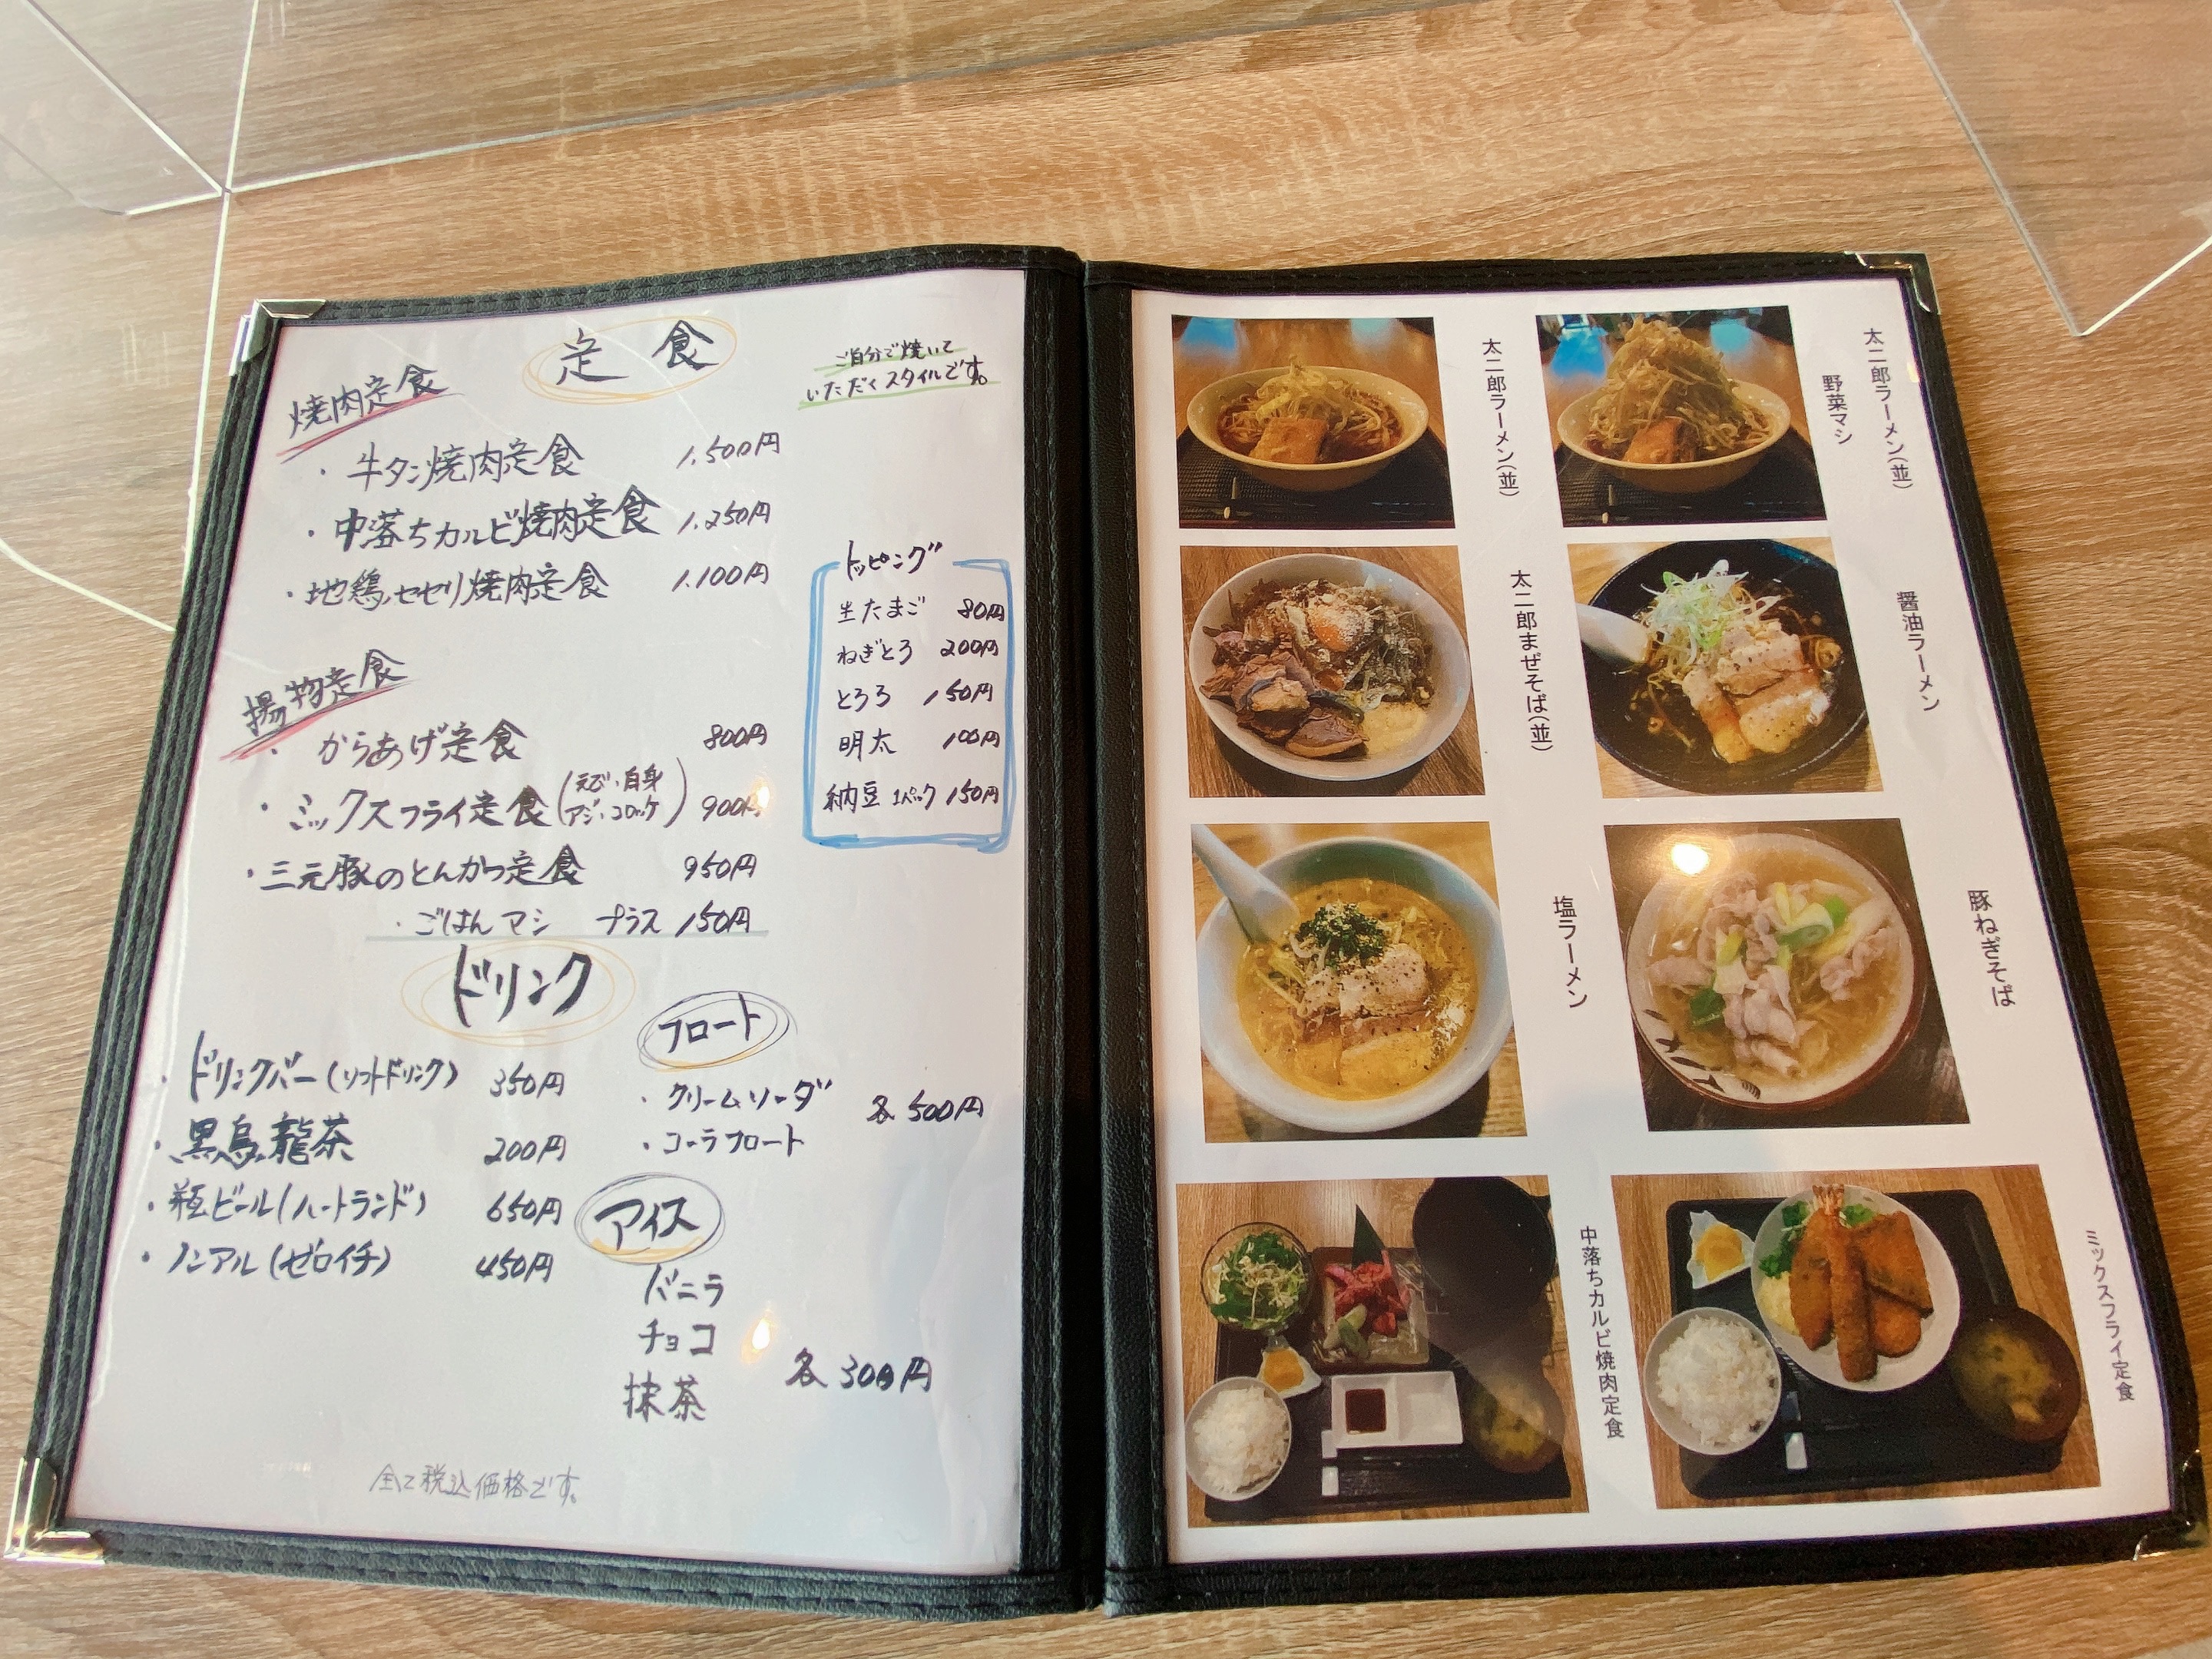 定食
ご自分で焼いて
いただくスタイルです。
焼肉定食
・牛タン焼肉定食 1,500円
・中落ちカルビ焼肉定食 1,250円
・地鶏セセリ焼肉定食 1,100円
揚物定食
・からあげ定食 800円
・ミックスフライ定食(えび・白身
アジ・コロッケ) 900円
・三元豚のとんかつ定食 950円
・ごはんマシ プラス 150円
トッピング
生たまご 80円
ねぎとろ 200円
とろろ 150円
明太 100円
納豆 1パック 150円
ドリンク
・ドリンクバー(ソフトドリンク) 350円
・黒烏龍茶 200円
・瓶ビール(ハートランド) 650円
・ノンアル(ゼロイチ) 450円
フロート
・クリームソーダ
・コーラフロート
各500円
アイス
バニラ
チョコ
抹茶
各300円
全て税込価格です。
太二郎ラーメン(並)
太二郎ラーメン(並)
野菜マシ
太二郎まぜそば(並)
醤油ラーメン
塩ラーメン
豚ねぎそば
中落ちカルビ焼肉定食
ミックスフライ定食